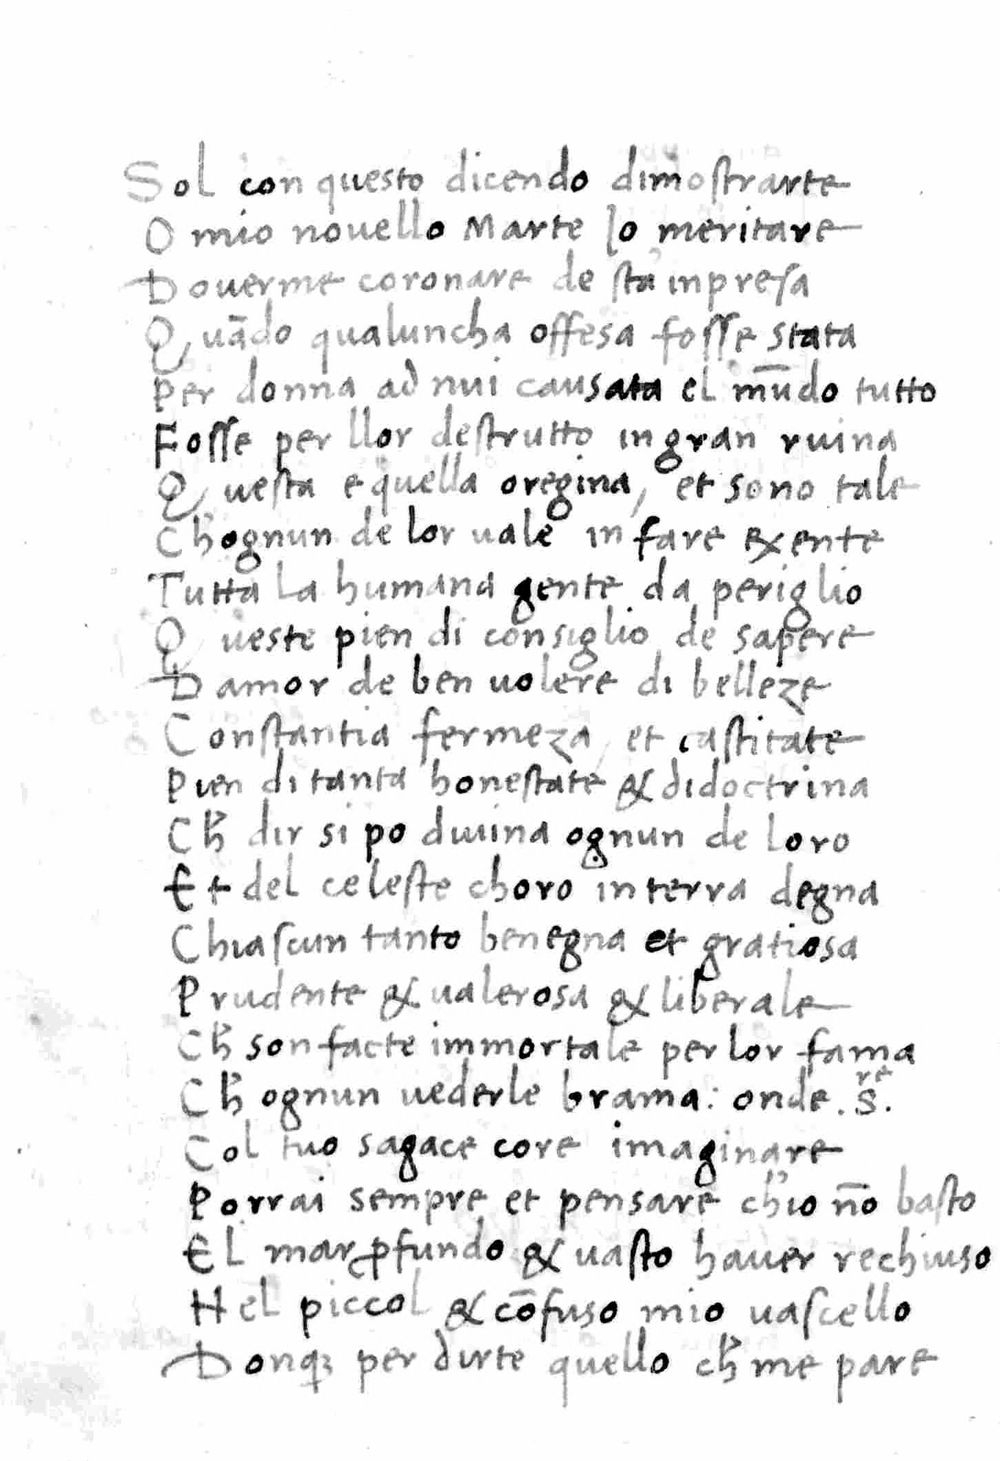 Sol con questo dicendo dimostrarte
O mio nouello Marte lo meritare
Douerme coronare de sta inpresa
Quādo qualuncha offesa fosse stata
Per donna ad nui causata el mūdo tutto
Fosse per llor destrutto in gran ruina
Questa e quella oregina, et sono tale
Ch'ognun de lor uale in fare exente
Tutta la humana gente da periglio
Queste pien di consiglio de sapere
Damor de ben uolere di belleze
Constantia fermeza et castitate
Pien di tanta honestate & di doctrina
Ch̄ dir si po diuina ognun de loro
Et del celeste choro in terra degna
Chiascun tanto benegna et gratiosa
Prudente & ualerosa & liberale
Ch̄ son facte immortale per lor fama
Ch̄ ognun uederle brama: onde .S.re
Col tuo sagace core imaginare
Porrai sempre et pensare ch'io nō basto
El mar ꝓfundo & uasto hauer rechiuso
Nel piccol & cōfuso mio uascello
Donqꝫ per dirte quello ch̄ me pare